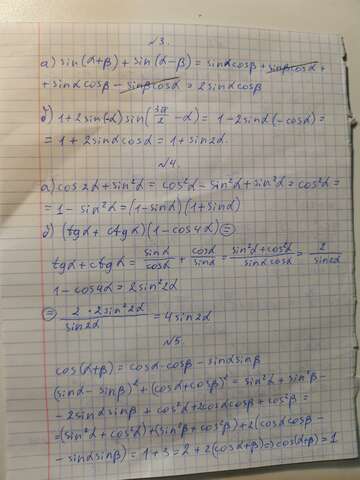 №3.
а) sin(α+β) + sin(α-β) = sinαcosβ + sinβcosα +
+ sinαcosβ - sinβcosα = 2sinαcosβ
б) 1 + 2sin(-α) sin(3π/2 - α) = 1 - 2sinα(-cosα) =
= 1 + 2sinαcosα = 1 + sin2α.
№4.
а) cos2α + sin²α = cos²α - sin²α + sin²α = cos²α =
= 1 - sin²α = (1 - sinα)(1 + sinα)
б) (tgα + ctgα)(1 - cos4α) =
tgα + ctgα = sinα/cosα + cosα/sinα = sin²α + cos²α/sinαcosα = 2/sin2α
1 - cos4α = 2sin²2α
= 2 · 2sin²2α/sin2α = 4sin2α
№5.
cos(α+β) = cosα·cosβ - sinαsinβ
(sinα - sinβ)² + (cosα + cosβ)² = sin²α + sin²β -
- 2sinαsinβ + cos²α + 2cosαcosβ + cos²β =
= (sin²α + cos²α) + (sin²β + cos²β) + 2(cosαcosβ -
- sinαsinβ) = 1 + 3 = 2 + 2(cos(α+β) ⇒ cos(α+β) = 1